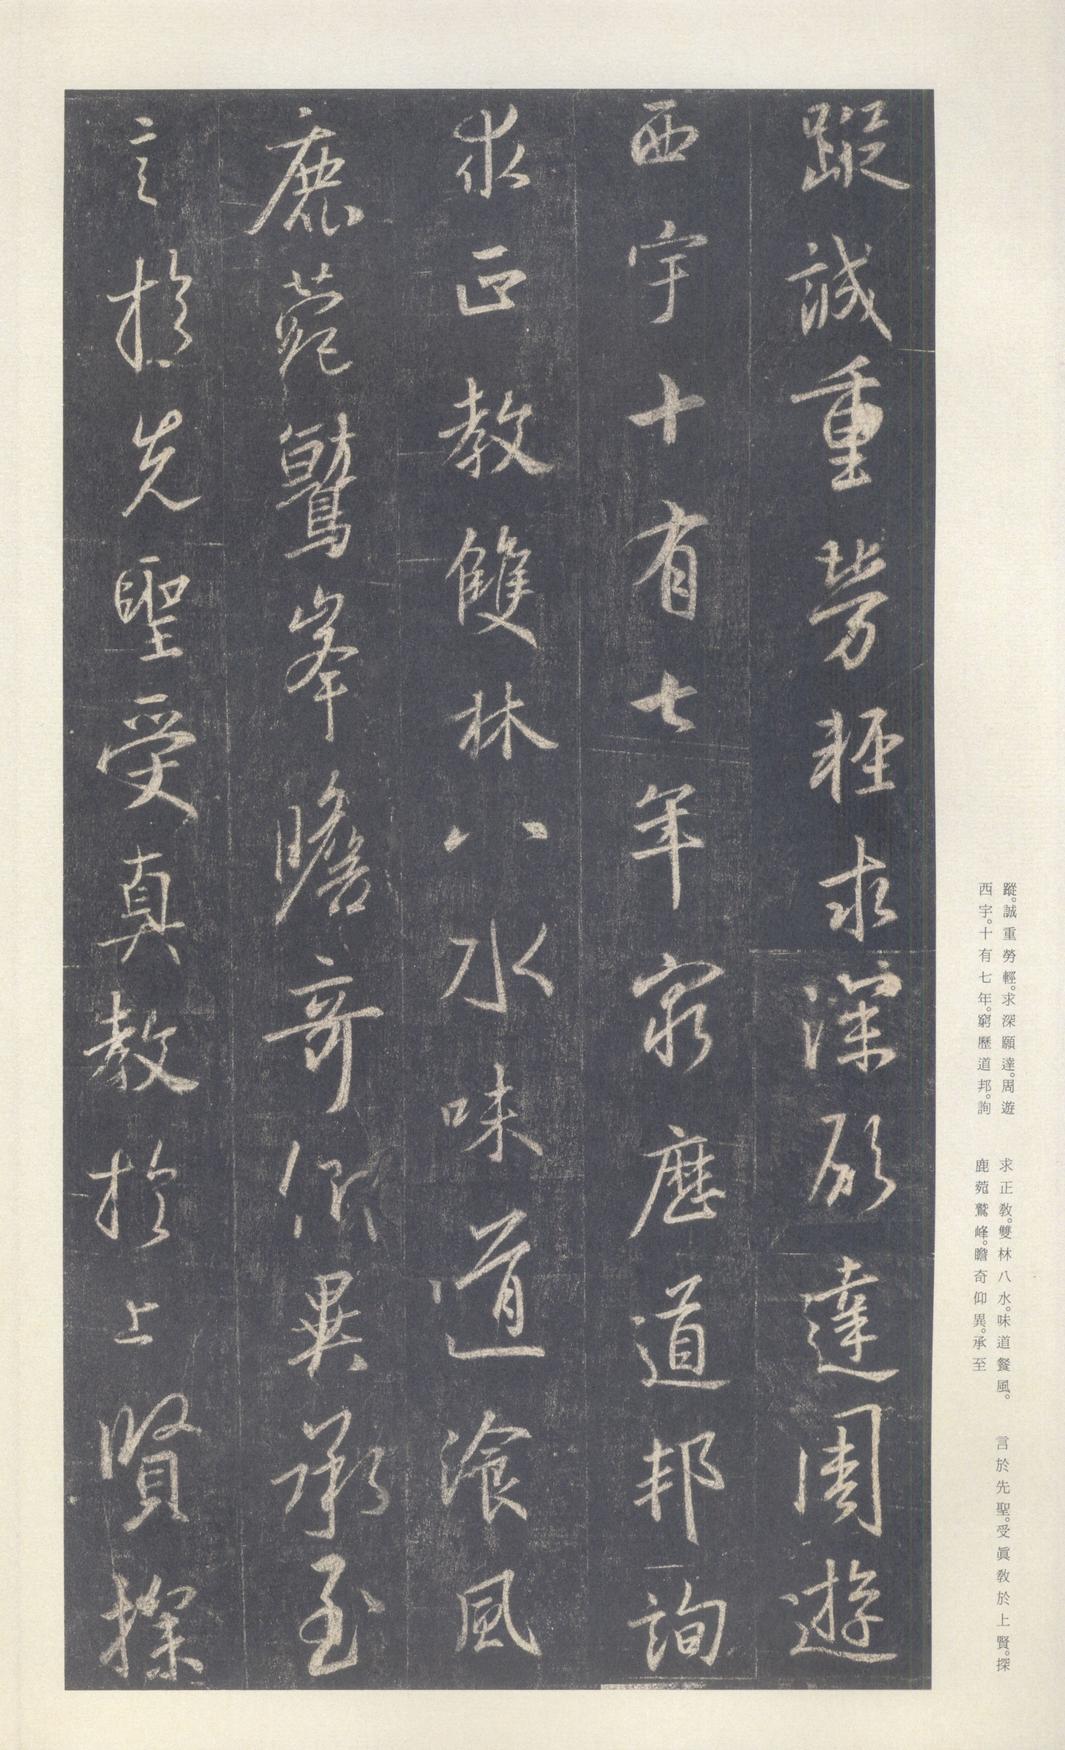 蹤誠重勞輕求深願達周遊
西宇十有七年窮歷道邦詢
求正教雙林八水味道飡風
鹿菀鷲峯瞻奇仰異承至
言於先聖受真教於上賢探
蹤。誠重勞輕。求深願達。周遊
西宇。十有七年。窮歷道邦。詢
求正敎。雙林八水。味道餐風。
鹿菀鷲峰。瞻奇仰異。承至
言於先聖。受眞敎於上賢。探